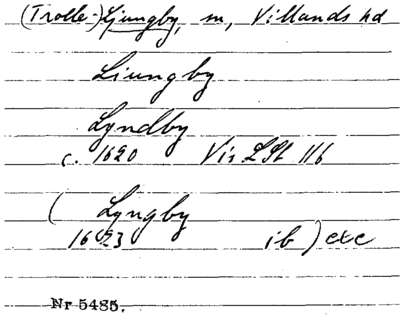 (Trolle-)Ljungby, m, Villands hd
Liungby
Lyndby
c. 1620 Vis LSt 116
( Lyngby
1623 ib ) exc
Nr 5485.